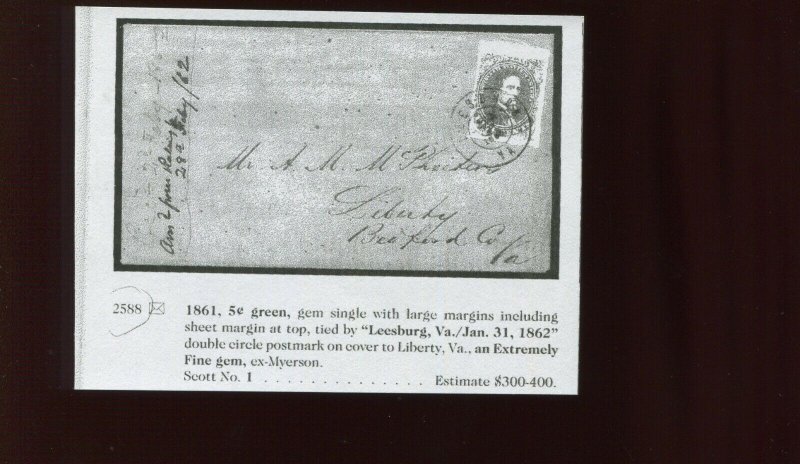 28th July /62
Mr A. M. McPheeters
Liberty
Bedford Co
Va
2588 1861, 5¢ green, gem single with large margins including
sheet margin at top, tied by “Leesburg, Va./Jan. 31, 1862”
double circle postmark on cover to Liberty, Va., an Extremely
Fine gem, ex-Myerson.
Scott No. 1 . . . . . . . . . . . . . . . Estimate $300-400.